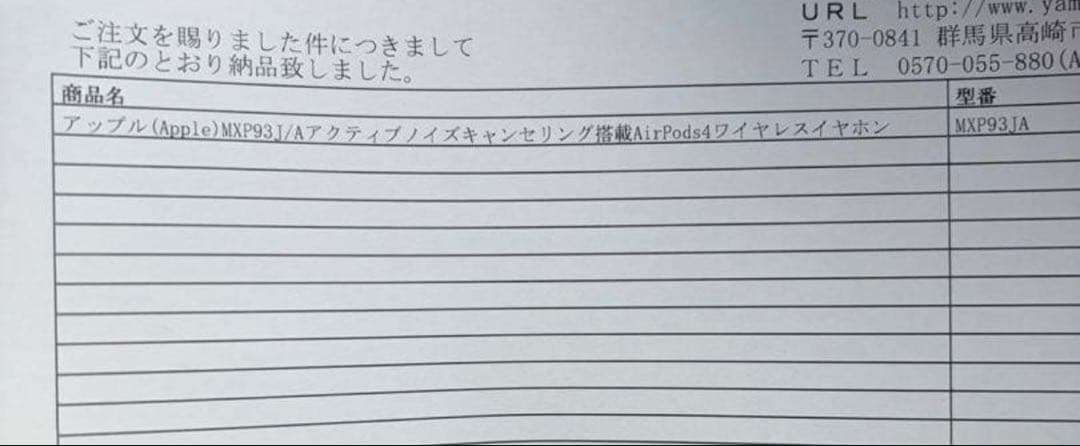 URL http://www.yam
ご注文を賜りました件につきまして
下記のとおり納品致しました。
〒370-0841 群馬県高崎市
TEL 0570-055-880(A
商品名 型番
アップル(Apple)MXP93J/Aアクティブノイズキャンセリング搭載AirPods4ワイヤレスイヤホン MXP93JA